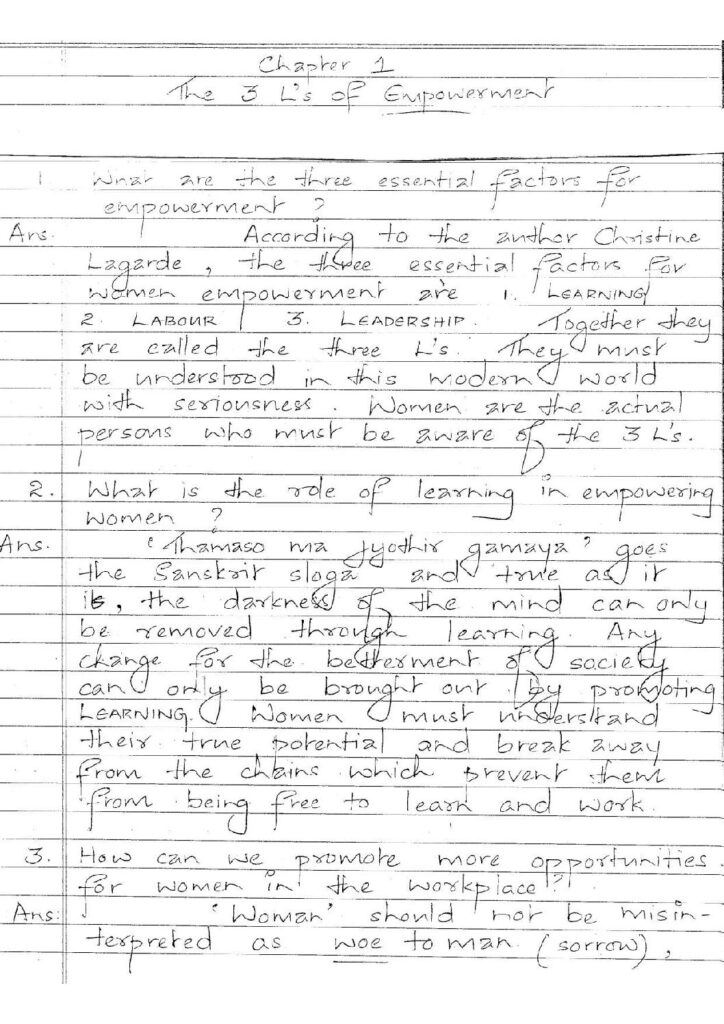 Chapter 1
The 3 L's of Empowerment
1 What are the three essential factors for
empowerment ?
Ans. According to the author Christine
Lagarde, the three essential factors for
women empowerment are 1. LEARNING
2. LABOUR 3. LEADERSHIP. Together they
are called the three L's. They must
be understood in this modern world
with seriousness. Women are the actual
persons who must be aware of the 3 L's.
2. What is the role of learning in empowering
women ?
Ans. 'Thamaso ma Jyothir gamaya' goes
the Sanskrit sloga and true as it
is, the darkness of the mind can only
be removed through learning. Any
change for the betterment of society
can only be brought out by promoting
LEARNING. Women must understand
their true potential and break away
from the chains which prevent them
from being free to learn and work.
3. How can we promote more opportunities
for women in the workplace?
Ans: 'Woman' should not be misin-
terpreted as woe to man (sorrow),